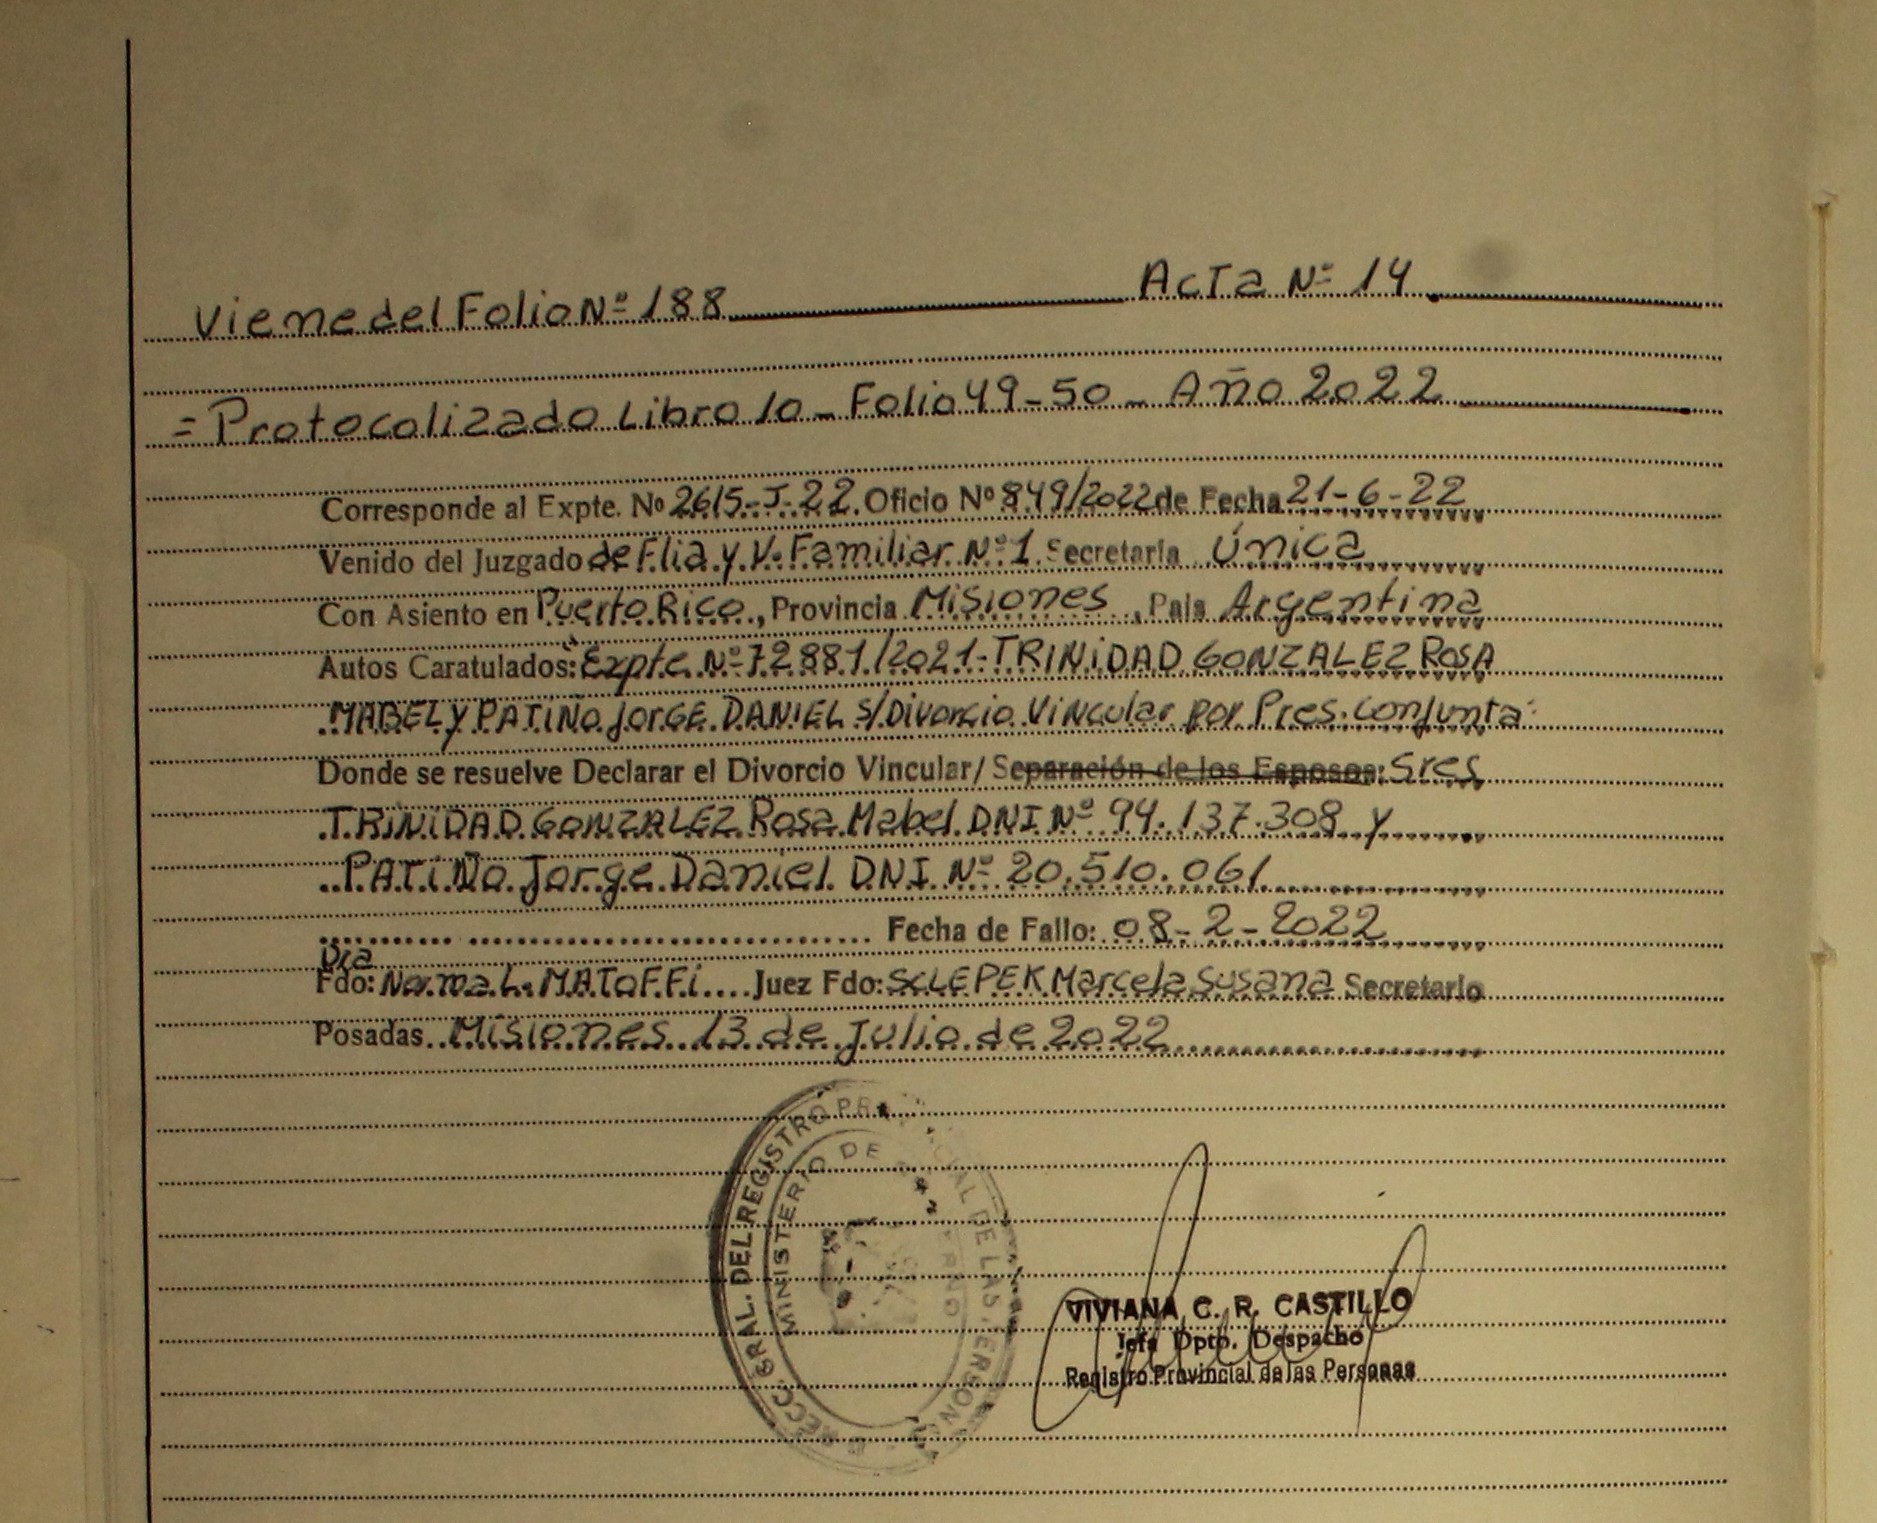 Viene del Folio Nº 188 Acta Nº 14
= Protocolizado Libro 10 - Folio 49-50 - Año 2022
Corresponde al Expte. Nº 2615-J-22. Oficio Nº 849/2022 de Fecha 21-6-22
Venido del Juzgado de Flia y V. Familiar Nº 1 Secretaría Única
Con Asiento en Puerto Rico, Provincia Misiones, País Argentina
Autos Caratulados: Expte Nº 72881/2021-TRINIDAD GONZALEZ ROSA
MABEL y PATIÑO JORGE DANIEL S/Divorcio Vincular por Pres. conjunta
Donde se resuelve Declarar el Divorcio Vincular/ Separación de los Esposos: Sres
TRINIDAD GONZALEZ Rosa Mabel DNI Nº 94.137.308 y
PATIÑO Jorge Daniel DNI Nº 20.510.061
Fecha de Fallo: 08-2-2022
Dra
Fdo: Norma L. MATOFFI Juez Fdo: SCLEPEK Marcela Susana Secretario
Posadas Misiones 13 de Julio de 2022
GRAL. DEL REGISTRO
MINISTERIO DE
VIVIANA C. R. CASTILLO
Jefa Dpto. Despacho
Registro Provincial de las Personas